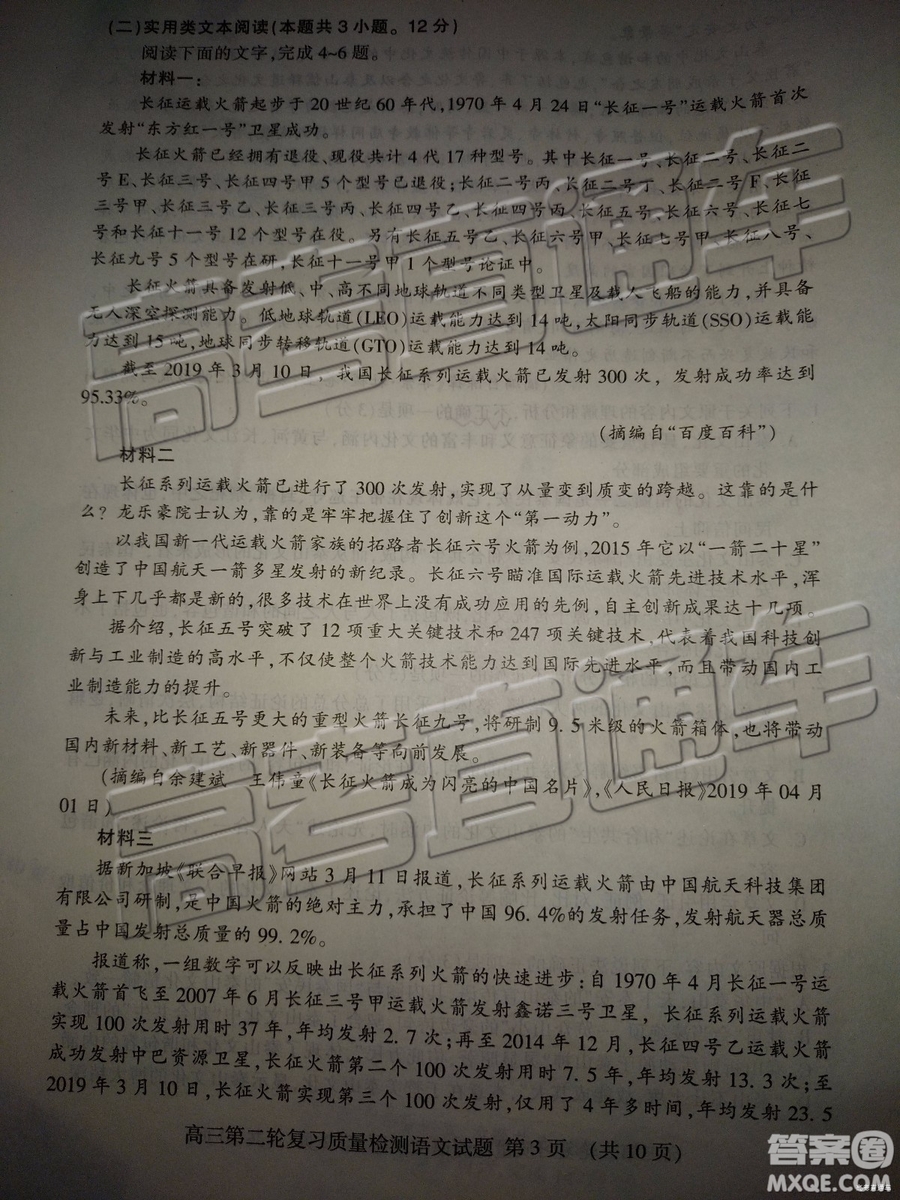 (二)实用类文本阅读(本题共3小题。12分)
阅读下面的文字,完成4~6题。
材料一:
长征运载火箭起步于20世纪60年代,1970年4月24日“长征一号”运载火箭首次
发射“东方红一号”卫星成功。
长征火箭已经拥有退役、现役共计4代17种型号。其中长征一号、长征二号、长征二
号E、长征三号、长征四号甲5个型号已退役;长征二号丙、长征二号丁、长征二号F、长征
三号甲、长征三号乙、长征三号丙、长征四号乙、长征四号丙、长征五号、长征六号、长征七
号和长征十一号12个型号在役。另有长征五号乙、长征六号甲、长征七号甲、长征八号、
长征九号5个型号在研,长征十一号甲1个型号论证中。
长征火箭具备发射低、中、高不同地球轨道不同类型卫星及载人飞船的能力,并具备
无人深空探测能力。低地球轨道(LEO)运载能力达到14吨,太阳同步轨道(SSO)运载能
力达到15吨,地球同步转移轨道(GTO)运载能力达到14吨。
截至2019年3月10日,我国长征系列运载火箭已发射300次,发射成功率达到
95.33%。
(摘编自“百度百科”)
材料二
长征系列运载火箭已进行了300次发射,实现了从量变到质变的跨越。这靠的是什
么?龙乐豪院士认为,靠的是牢牢把握住了创新这个“第一动力”。
以我国新一代运载火箭家族的拓路者长征六号火箭为例,2015年它以“一箭二十星”
创造了中国航天一箭多星发射的新纪录。长征六号瞄准国际运载火箭先进技术水平,浑
身上下几乎都是新的,很多技术在世界上没有成功应用的先例,自主创新成果达十几项。
据介绍,长征五号突破了12项重大关键技术和247项关键技术,代表着我国科技创
新与工业制造的高水平,不仅使整个火箭技术能力达到国际先进水平,而且带动国内工
业制造能力的提升。
未来,比长征五号更大的重型火箭长征九号,将研制9.5米级的火箭箱体,也将带动
国内新材料、新工艺、新器件、新装备等向前发展。
(摘编自余建斌 王伟童《长征火箭成为闪亮的中国名片》,《人民日报》2019年04月
01日)
材料三
据新加坡《联合早报》网站3月11日报道,长征系列运载火箭由中国航天科技集团
有限公司研制,是中国火箭的绝对主力,承担了中国96.4%的发射任务,发射航天器总质
量占中国发射总质量的99.2%。
报道称,一组数字可以反映出长征系列火箭的快速进步:自1970年4月长征一号运
载火箭首飞至2007年6月长征三号甲运载火箭发射鑫诺三号卫星,长征系列运载火箭
实现100次发射用时37年,年均发射2.7次;再至2014年12月,长征四号乙运载火箭
成功发射中巴资源卫星,长征火箭第二个100次发射用时7.5年,年均发射13.3次;至
2019年3月10日,长征火箭实现第三个100次发射,仅用了4年多时间,年均发射23.5
高三第二轮复习质量检测语文试题 第3页 (共10页)
高考直通车
高考直通车
答案圈
MXQE.COM